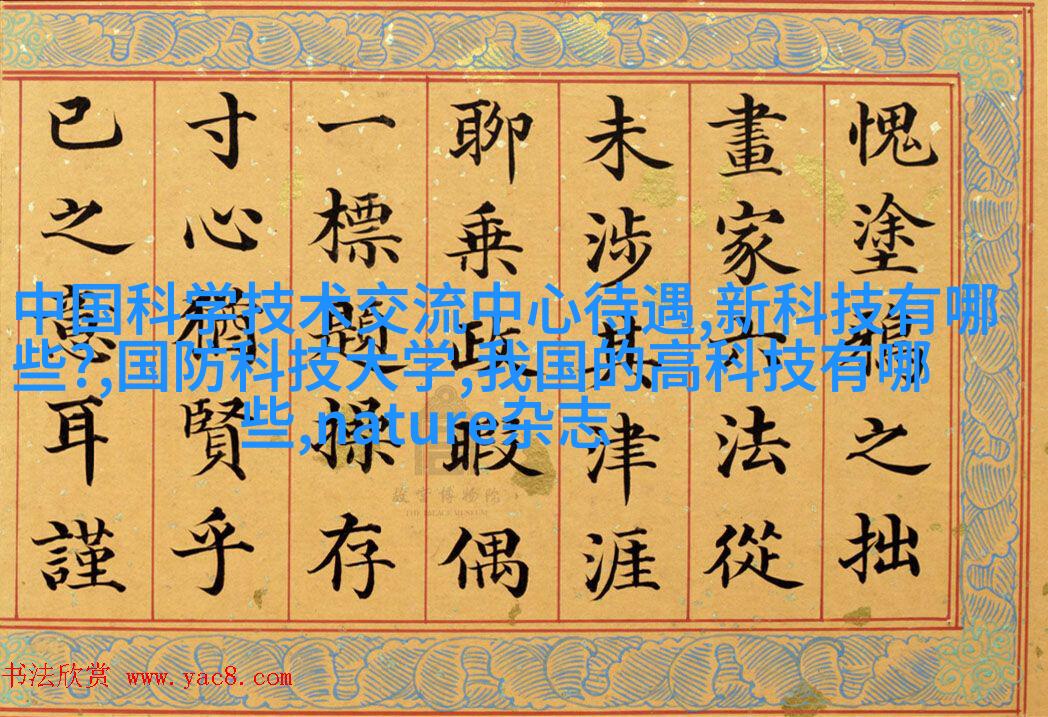 愧塗之拙
畫家六法從
未涉其津涯
聊乘政暇偶
一標題操存
寸心猶賢乎
已之意耳謹
中国科学技术交流中心待遇,新科技有哪
些?,国防科技大学,我国的高科技有哪
些,nature杂志
故宫博物院
THE PALACE MUSEUM
书法欣赏 www.yac8.com